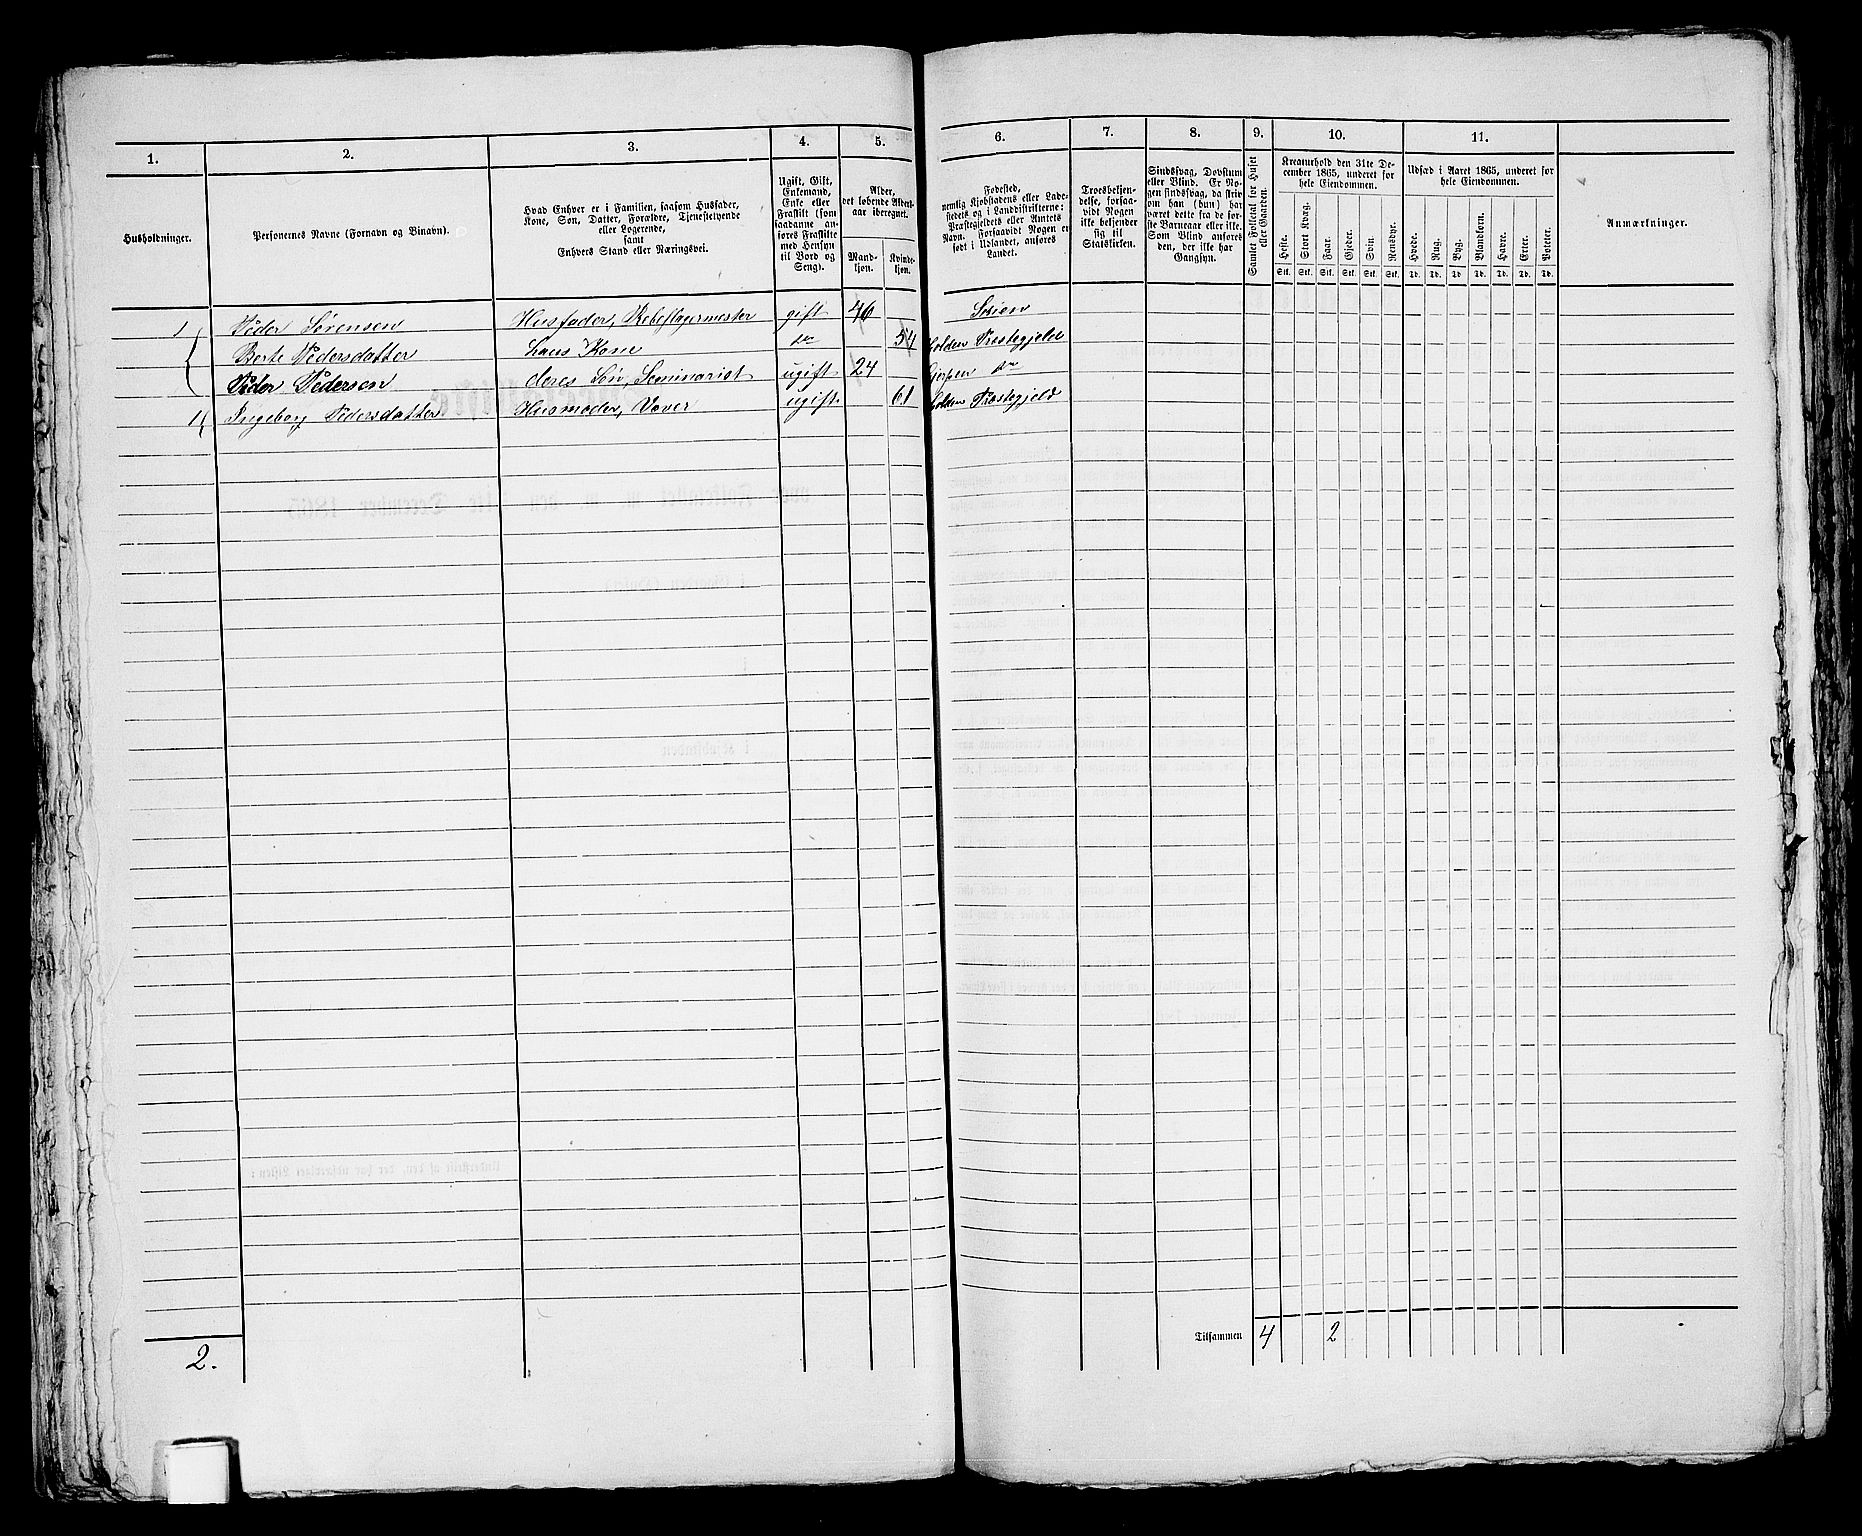 1. 2. 3. 4. 5. 6. 7. 8. 9. 10. 11.
Husholdninger.
Personernes Navne (Fornavn og Binavn).
Hvad Enhver er i Familien, saasom Husfader,
Kone, Søn, Datter, Forældre, Tjenestetyende
eller Logerende,
samt
Enhvers Stand eller Næringsvei.
Ugift, Gift,
Enkemand,
Enke eller
Fraskilt (som
saadanne an-
føres Fraskilte
med Hensyn
til Bord og
Seng).
Alder,
det løbende Alders-
aar iberegnet.
Mand-
kjøn.
Kvinde-
kjøn.
Fødested,
nemlig Kjøbstadens eller Lade-
stedets og i Landdistrikterne:
Præstegjeldets eller Amtets
Navn. Forsaavidt Nogen er
født i Udlandet, anføres
Landet.
Troesbekjen-
delse, forsaa-
vidt Nogen
ikke bekjender
sig til
Statskirken.
Sindssvag, Døvstum
eller Blind. Er No-
gen sindssvag, da skriv
om han (hun) har
været dette fra de før-
ste Barneaar eller ikke.
Som Blind anføres
den, der ikke har
Gangsyn.
Samlet Folketal for Huset
eller Gaarden.
Kreaturhold den 31te De-
cember 1865, underet for
hele Eiendommen.
Heste. Stort Kvæg. Faar. Gjeder. Svin. Rensdyr.
Stk. Stk. Stk. Stk. Stk. Stk.
Udsæd i Aaret 1865, underet for
hele Eiendommen.
Hvede. Rug. Byg. Blandkorn. Havre. Erter. Poteter.
Td. Td. Td. Td. Td. Td. Td.
Anmærkninger.
1 Peder Sørensen Husfader, Rebslagermester gift 46 Skien
Berte Pedersdatter hans Kone do 54 Holden Præstegjeld
Peder Pedersen deres Søn, Seminarist ugift 24 Gjerpen do
1 Ingeborg Pedersdatter Husmoder, Væver ugift 61 Holden Præstegjeld
Tilsammen 4 2
2.